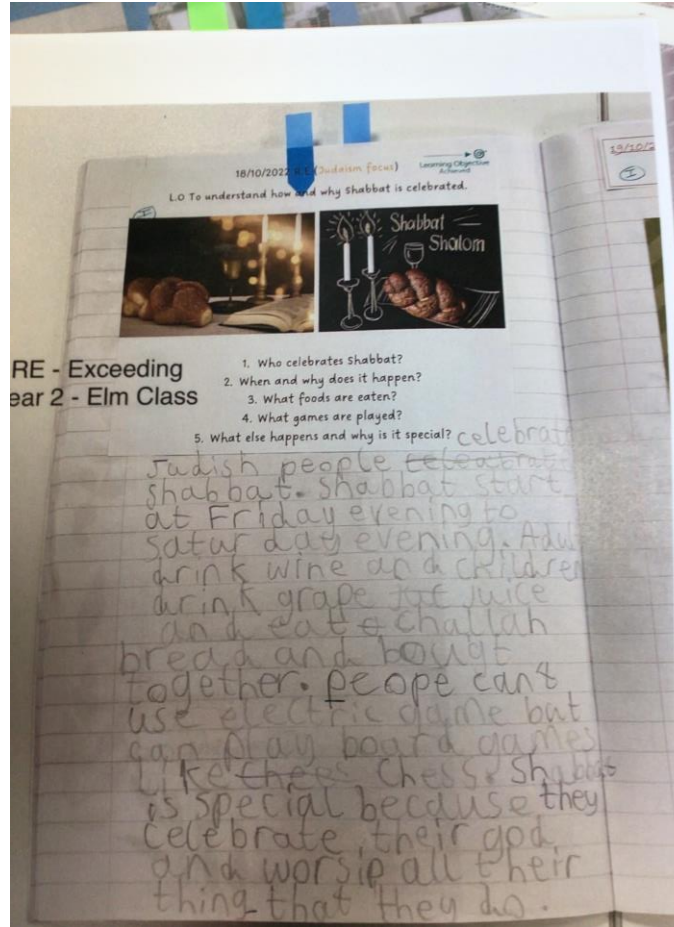 18/10/2022 R.E (Judaism focus)
Learning Objective
Achieved
L.O To understand how and why Shabbat is celebrated.
I
Shabbat
Shalom
19/10/2
I
RE - Exceeding
ear 2 - Elm Class
1. Who celebrates Shabbat?
2. When and why does it happen?
3. What foods are eaten?
4. What games are played?
5. What else happens and why is it special? celebrat
Judish people
Shabbat. Shabbat start
at Friday evening to
Satur day evening. Adul
drink wine and children
drink grape juice
and eat challah
bread and bougt
together. peope can't
use electric game but
can play board games
Like chees Chess. Shabbat
is special because they
celebrate their god
and worsip all their
thing that they do.